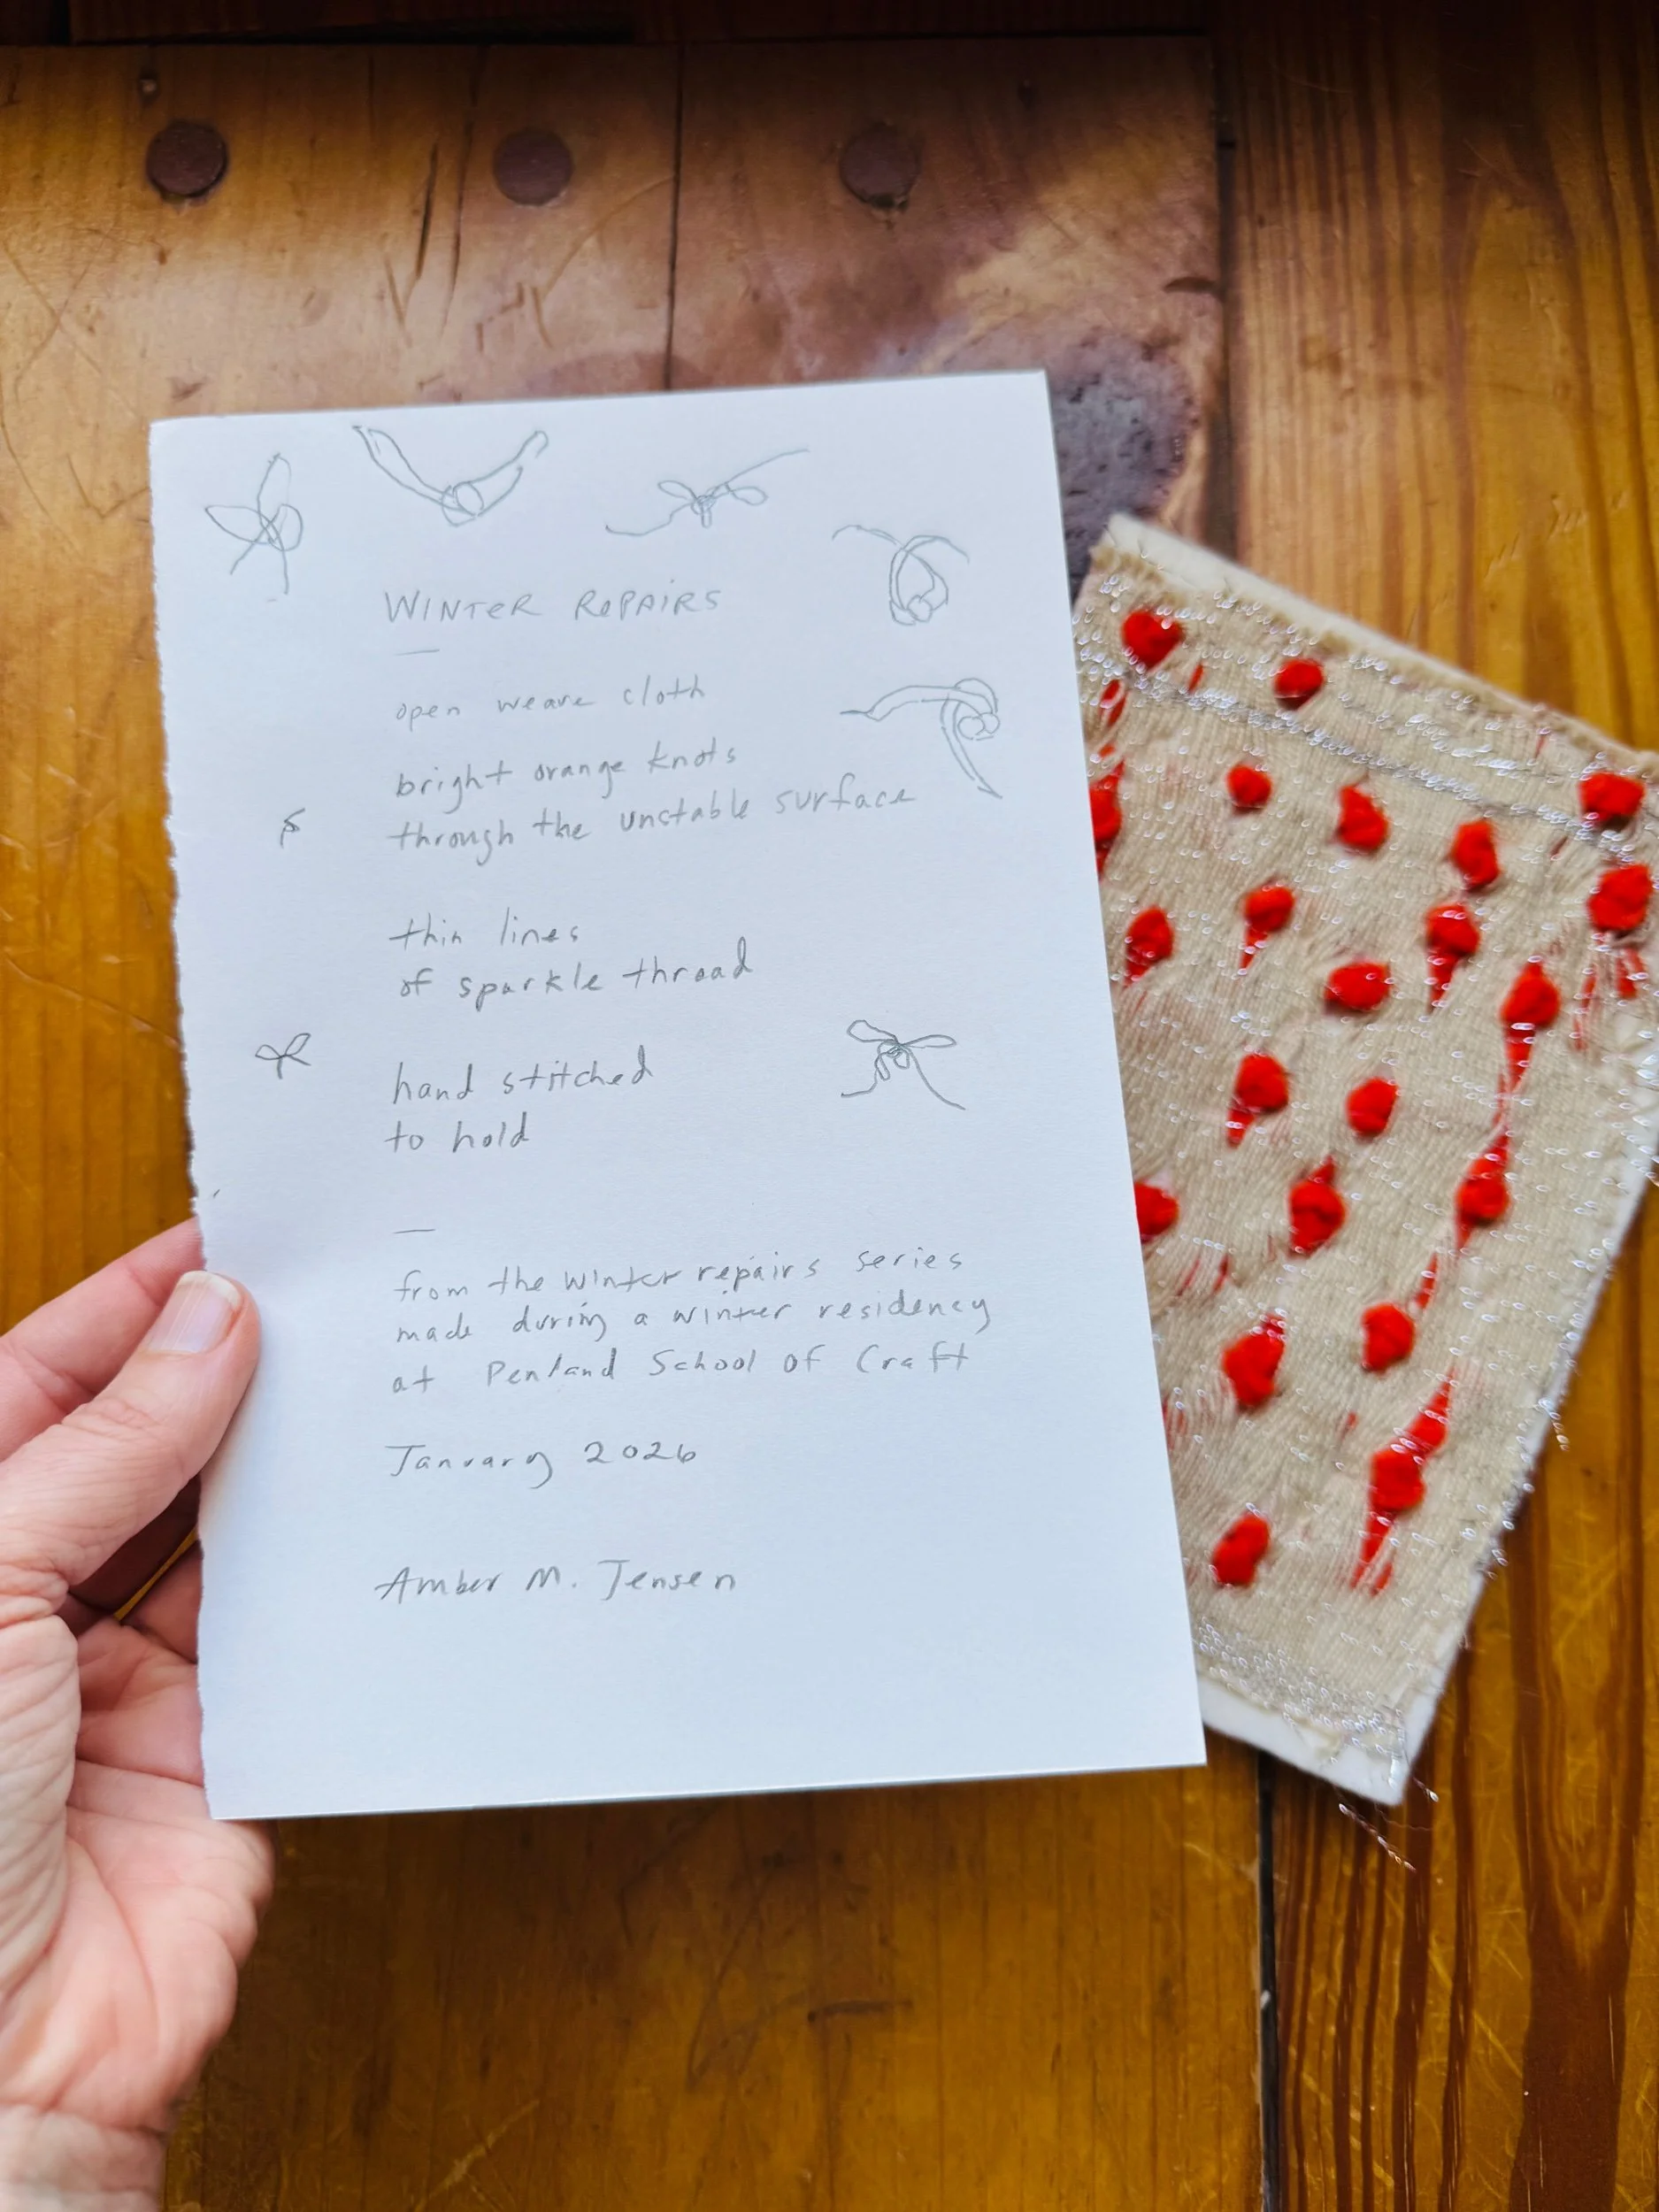 WINTER REPAIRS
open weave cloth
bright orange knots
through the unstable surface
thin lines
of sparkle thread
hand stitched
to hold
from the winter repairs series
made during a winter residency
at Penland School of Craft
January 2026
Amber M. Jensen